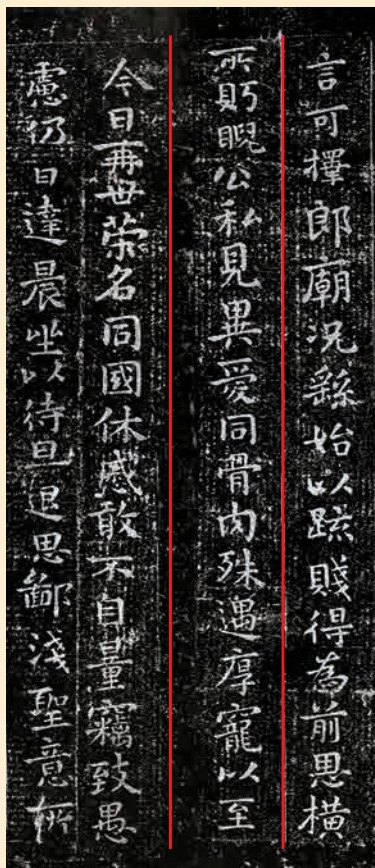 言可擇郎廟況繇始以疏賤得為前恩橫
所眄睨公私見異愛同骨肉殊遇厚寵以至
今日再世榮名同國休慼敢不自量竊致愚
慮仍日達晨坐以待旦退思鄙淺聖意所